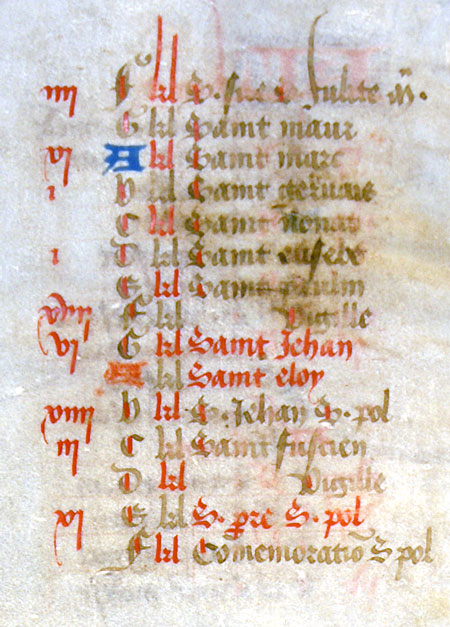 iiij F kl S. S. Julite m.
G kl Saint maur
A kl Saint marc
i b kl Saint geruaise
c kl Saint
i d kl Saint eusebe
e kl Saint paulin
f kl Vigille
vj G kl Saint Jehan
A kl Saint eloy
xiiij b kl S. Jehan S. pol
iij c kl Saint fuscien
d kl Vigille
xj e kl S. pre S. pol
f kl Comemoratiō S pol